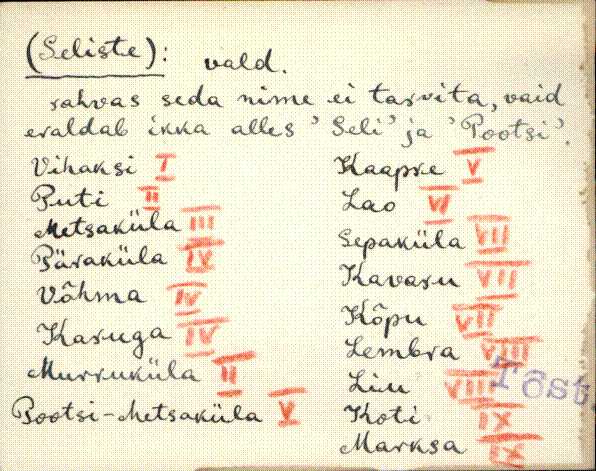 (Seliste): vald.
rahvas seda nime ei tarvita, vaid
eraldab ikka alles 'Seli' ja 'Pootsi'.
Vihaksi I
Puti II
Metsaküla III
Päraküla IV
Võhma IV
Karuga IV
Murruküla II
Pootsi-Metsaküla V
Kaapre V
Lao VI
Sepaküla VII
Kavaru VII
Kõpu VII
Lembra VIII
Liu VIII
Koti IX
Marksa IX
Tõst.